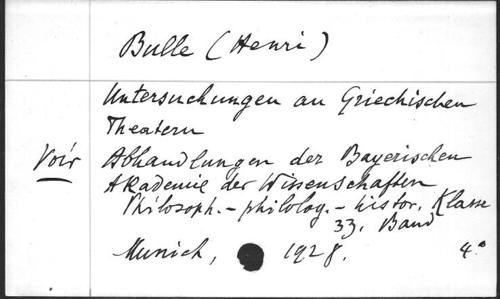 Bulle (Henri)
Untersuchungen an Griechischen
Theatern
Voir Abhandlungen der Bayerischen
Akademie der Wissenschaften
Philosoph.- philolog.- histor. Klasse
33. Band
Munich, 1928. 4.°